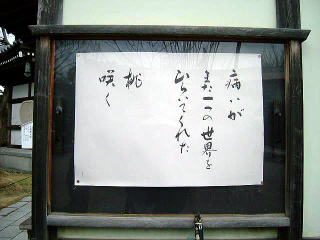 病いが
また一つの世界を
ひらいてくれた
桃
咲く